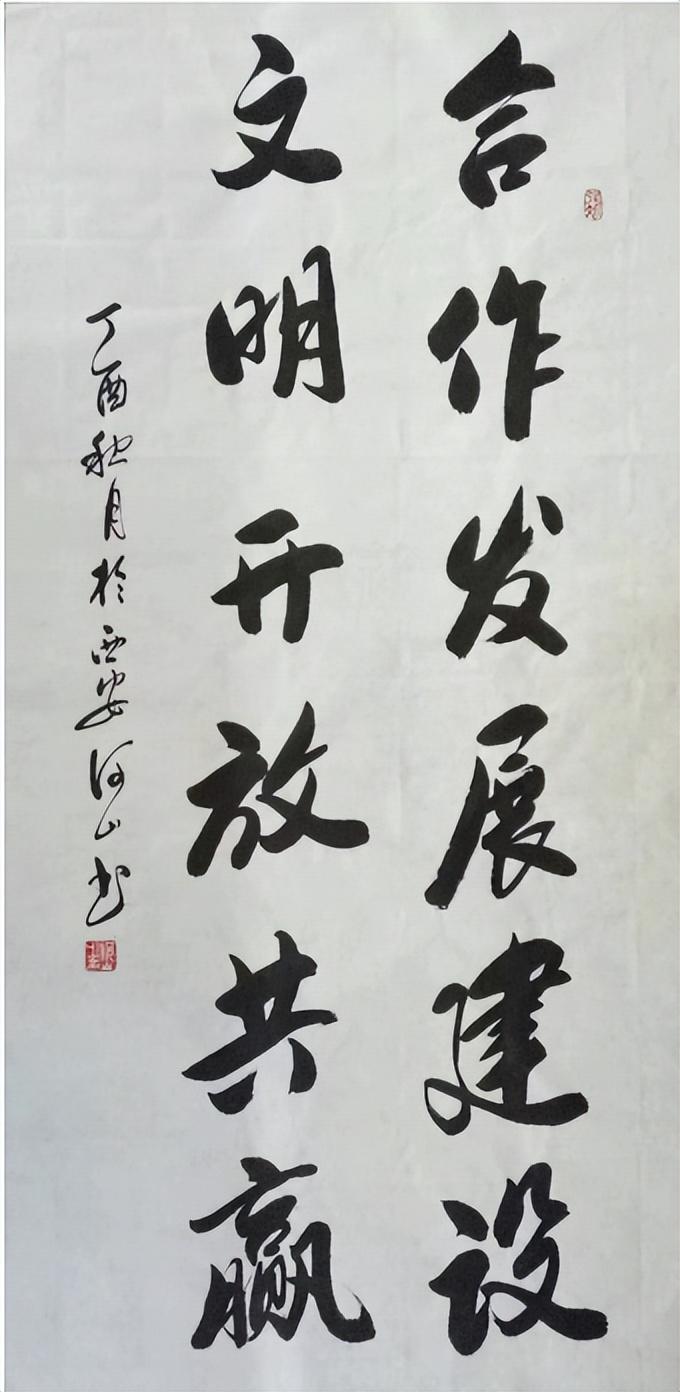 合作发展建设
文明开放共赢
丁酉秋月於西安河山书